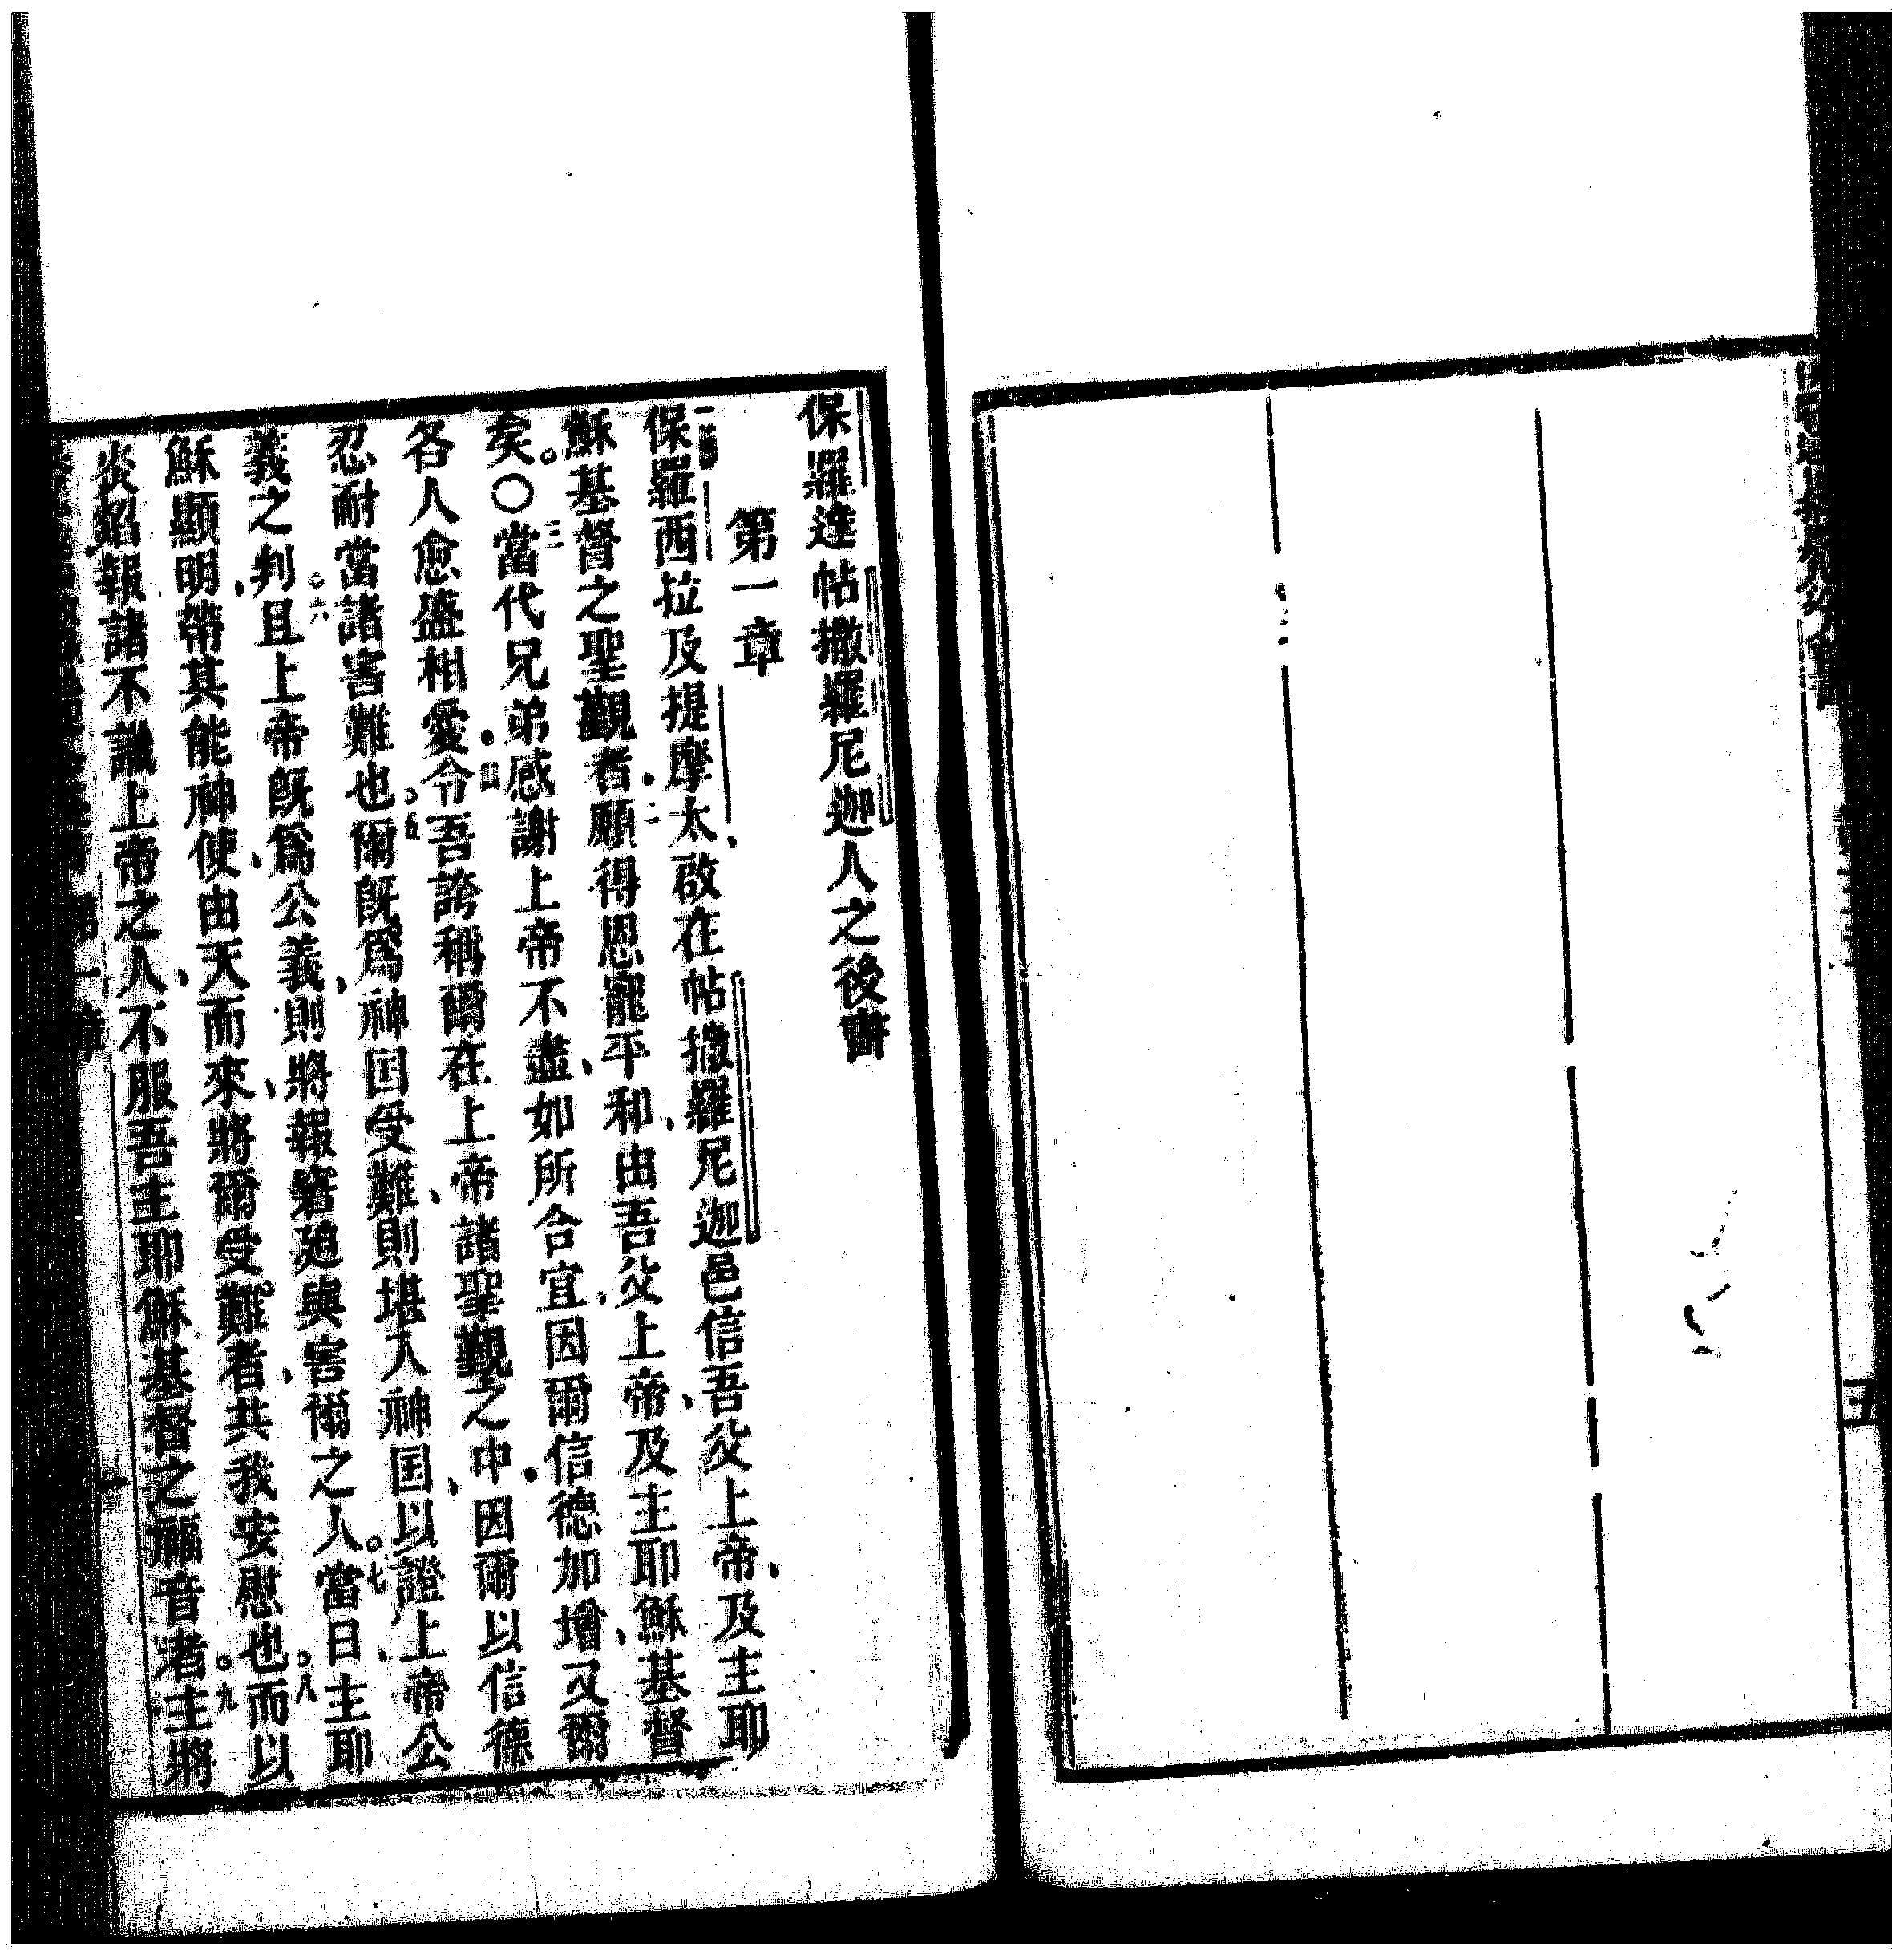 保羅達帖撒羅尼迦人之後書
第一章
保羅西拉及提摩太啟在帖撒羅尼迦邑信吾父上帝及主耶
穌基督之聖觀者願得恩寵平和由吾父上帝及主耶穌基督
矣〇當代兄弟感謝上帝不盡如所合宜因爾信德加增又爾
各人愈盛相愛令吾誇稱爾在上帝諸聖觀之中因爾以信德
忍耐當諸害難也爾既爲神国受難則堪入神国以證上帝公
義之判且上帝既爲公義則將報窘廹與害爾之人當日主耶
穌顯明帶其能神使由天而來將爾受難者共我安慰也而以
炎熖報諸不識上帝之人不服吾主耶穌基督之福音者主將
五